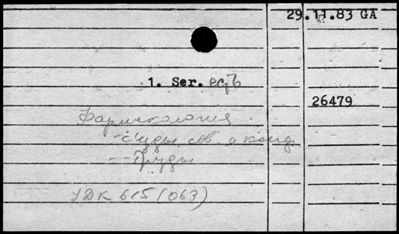 29.11.83 GA
1. Ser. есть
26479
Фармакология
- съезды, сов. и конф.
-- Труды
УДК 615(063)